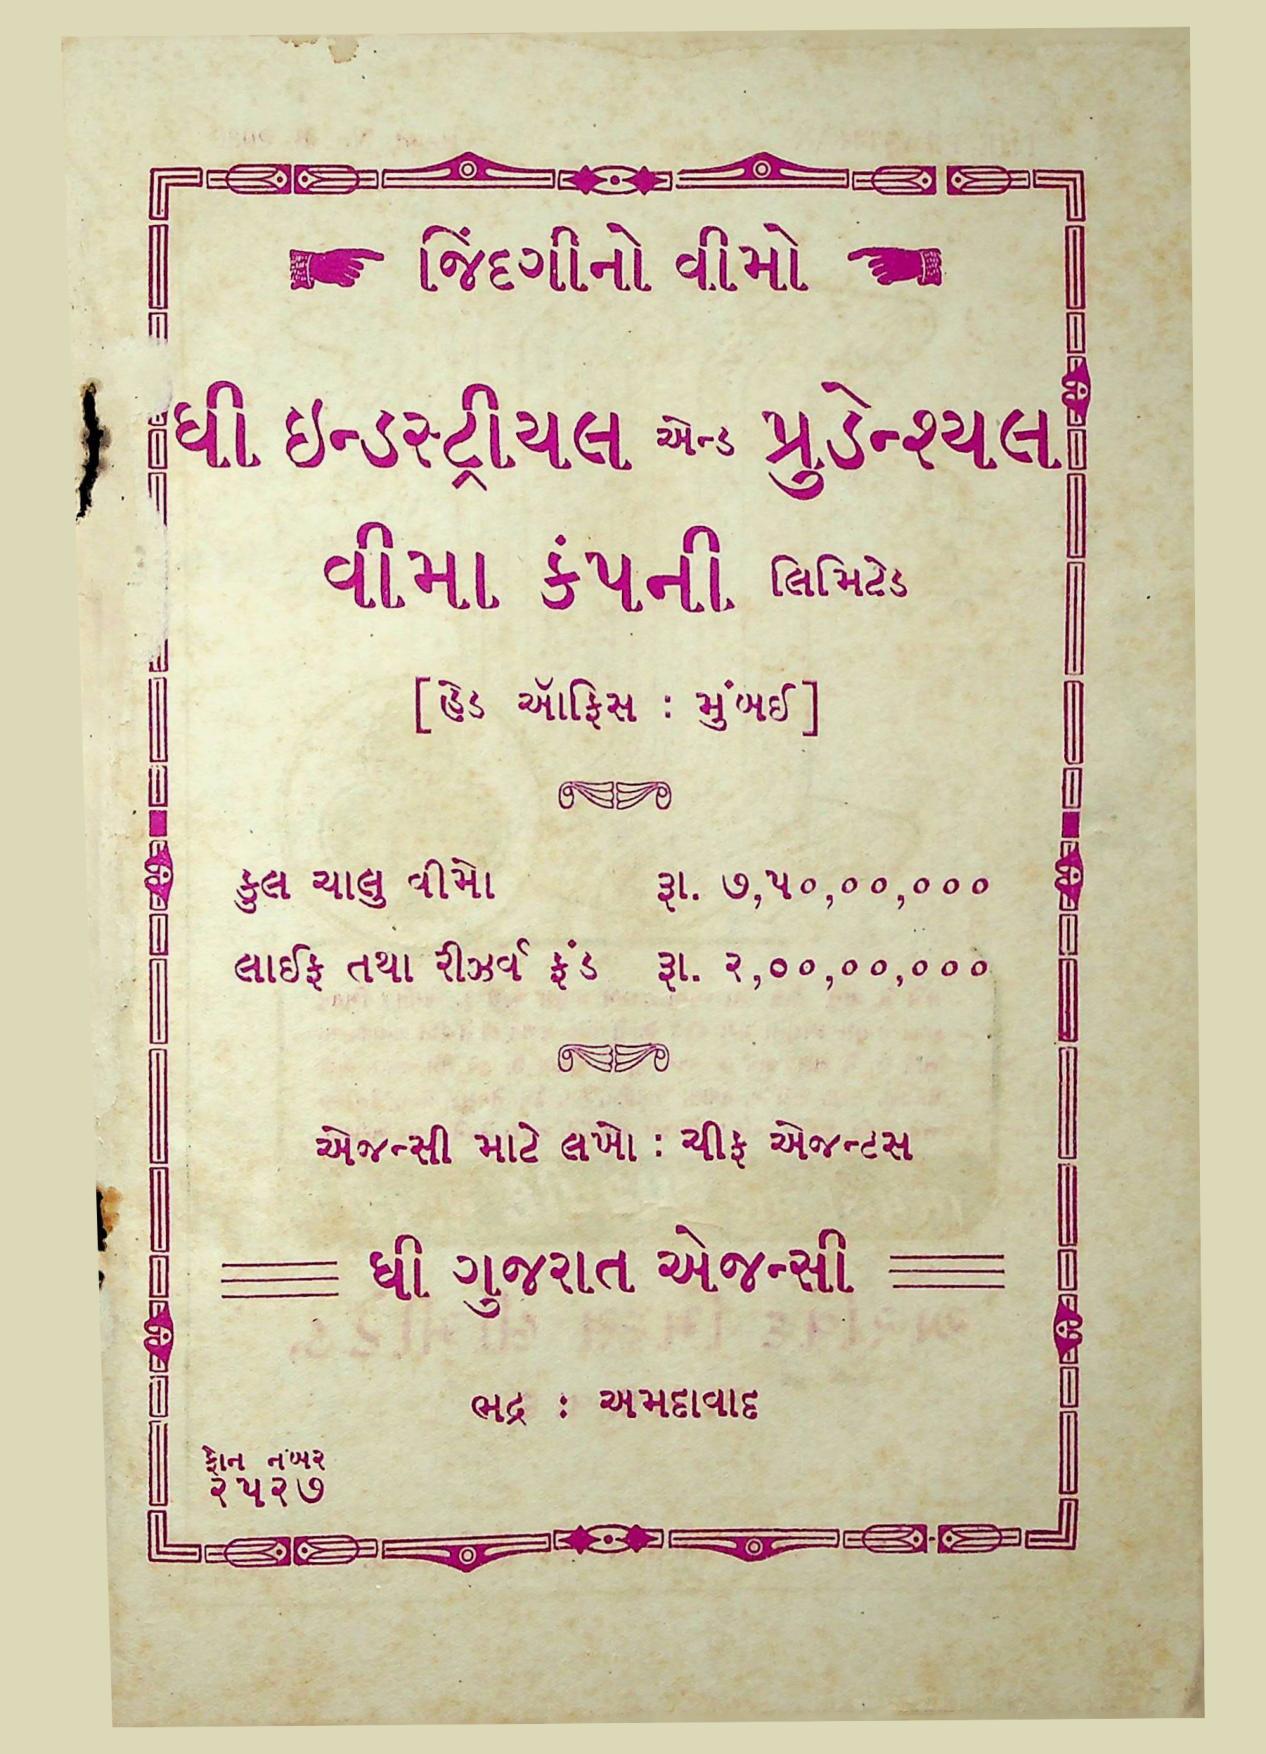 જિંદગીનો વીમો
ધી ઇન્ડસ્ટ્રીયલ એન્ડ પ્રુડેન્શ્યલ
વીમા કંપની લિમિટેડ
[હેડ ઑફિસ : મુંબઈ]
કુલ ચાલુ વીમો રૂા. ૭,૫૦,૦૦,૦૦૦
લાઈફ તથા રીઝર્વ ફંડ રૂા. ૨,૦૦,૦૦,૦૦૦
એજન્સી માટે લખો : ચીફ એજન્ટસ
ધી ગુજરાત એજન્સી
ભદ્ર : અમદાવાદ
ફોન નંબર
૨૫૨૭